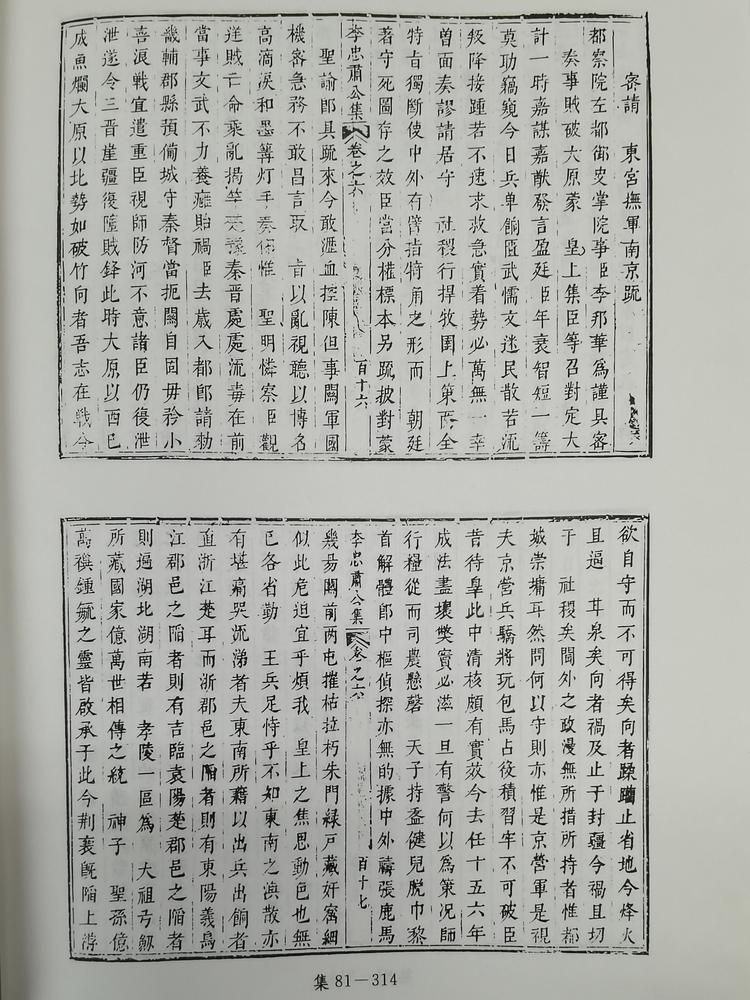 密請　東宮撫軍南京疏
都察院左都御史掌院事臣李邦華爲謹具密
奏事賊破大原蒙　皇上集臣等召對定大
計一時嘉謀嘉猷發言盈廷臣年衰智短一籌
莫効竊窺今日兵单餉匱武懦文迷民散若流
叛降接踵若不速求救急實着勢必萬無一幸
曾面奏謬請居守　社稷行捍牧圉上策
特㫖獨斷使中外有臂指犄角之形而　朝廷
著守死圖存之效臣當分權標本另疏披對蒙
李忠肅公集　卷之六　百十六
聖諭卽具疏來今敢瀝血控陳但事關軍國
機密急務不敢昌言取　㫖以亂視聽以博名
高滴淚和墨篝灯手奏伏惟　聖明憐察臣觀
逆賊亡命乘亂揭竿楚豫秦晉處處流毒在前
當事文武不力養癰貽禍臣去歲入都卽請勅
畿輔郡縣預偹城守秦督當扼關自固毋矜小
喜浪戰宜遣重臣視師防河不意諸臣仍復泄
泄遂令三晉崖疆復墮賊鋒此時大原以西已
成魚爛大原以北勢如破竹向者吾志在戰今
欲自守而不可得矣向者蹂躪止省地今烽火
且逼　甘泉矣向者禍及止于封疆今禍且切
于　社稷矣閫外之政漫無所措所持者惟都
城崇墉耳然問何以守則亦惟是京營軍是視
夫京營兵驕將玩包馬占役積習牢不可破臣
昔待辠此中清核頗有實效今去任十五六年
成法盡壞獘竇必滋一旦有警何以爲策況師
行糧從而司農懸磬　天子持盋健兒脫巾黎
首解體卽中樞偵探亦無的據中外譸張鹿馬
李忠肅公集　卷之六　百十七
幾易關前兩屯摧枯拉朽朱門緑戸藏奸窩細
似此危迫宜乎煩我　皇上之焦思動色也無
已各省勤　王兵足恃乎不知東南之渙散亦
有堪痛哭流涕者夫東南所藉以出兵出餉者
直浙江楚耳而浙郡邑之陷者則有東陽義烏
江郡邑之陷者則有吉臨袁陽楚郡邑之陷者
則遍湖北湖南若　孝陵一區爲　大祖弓劒
所藏國家億萬世相傳之統　神子　聖孫億
萬禩鍾毓之靈皆啟承于此今荆襄旣陷上游
集 81－314